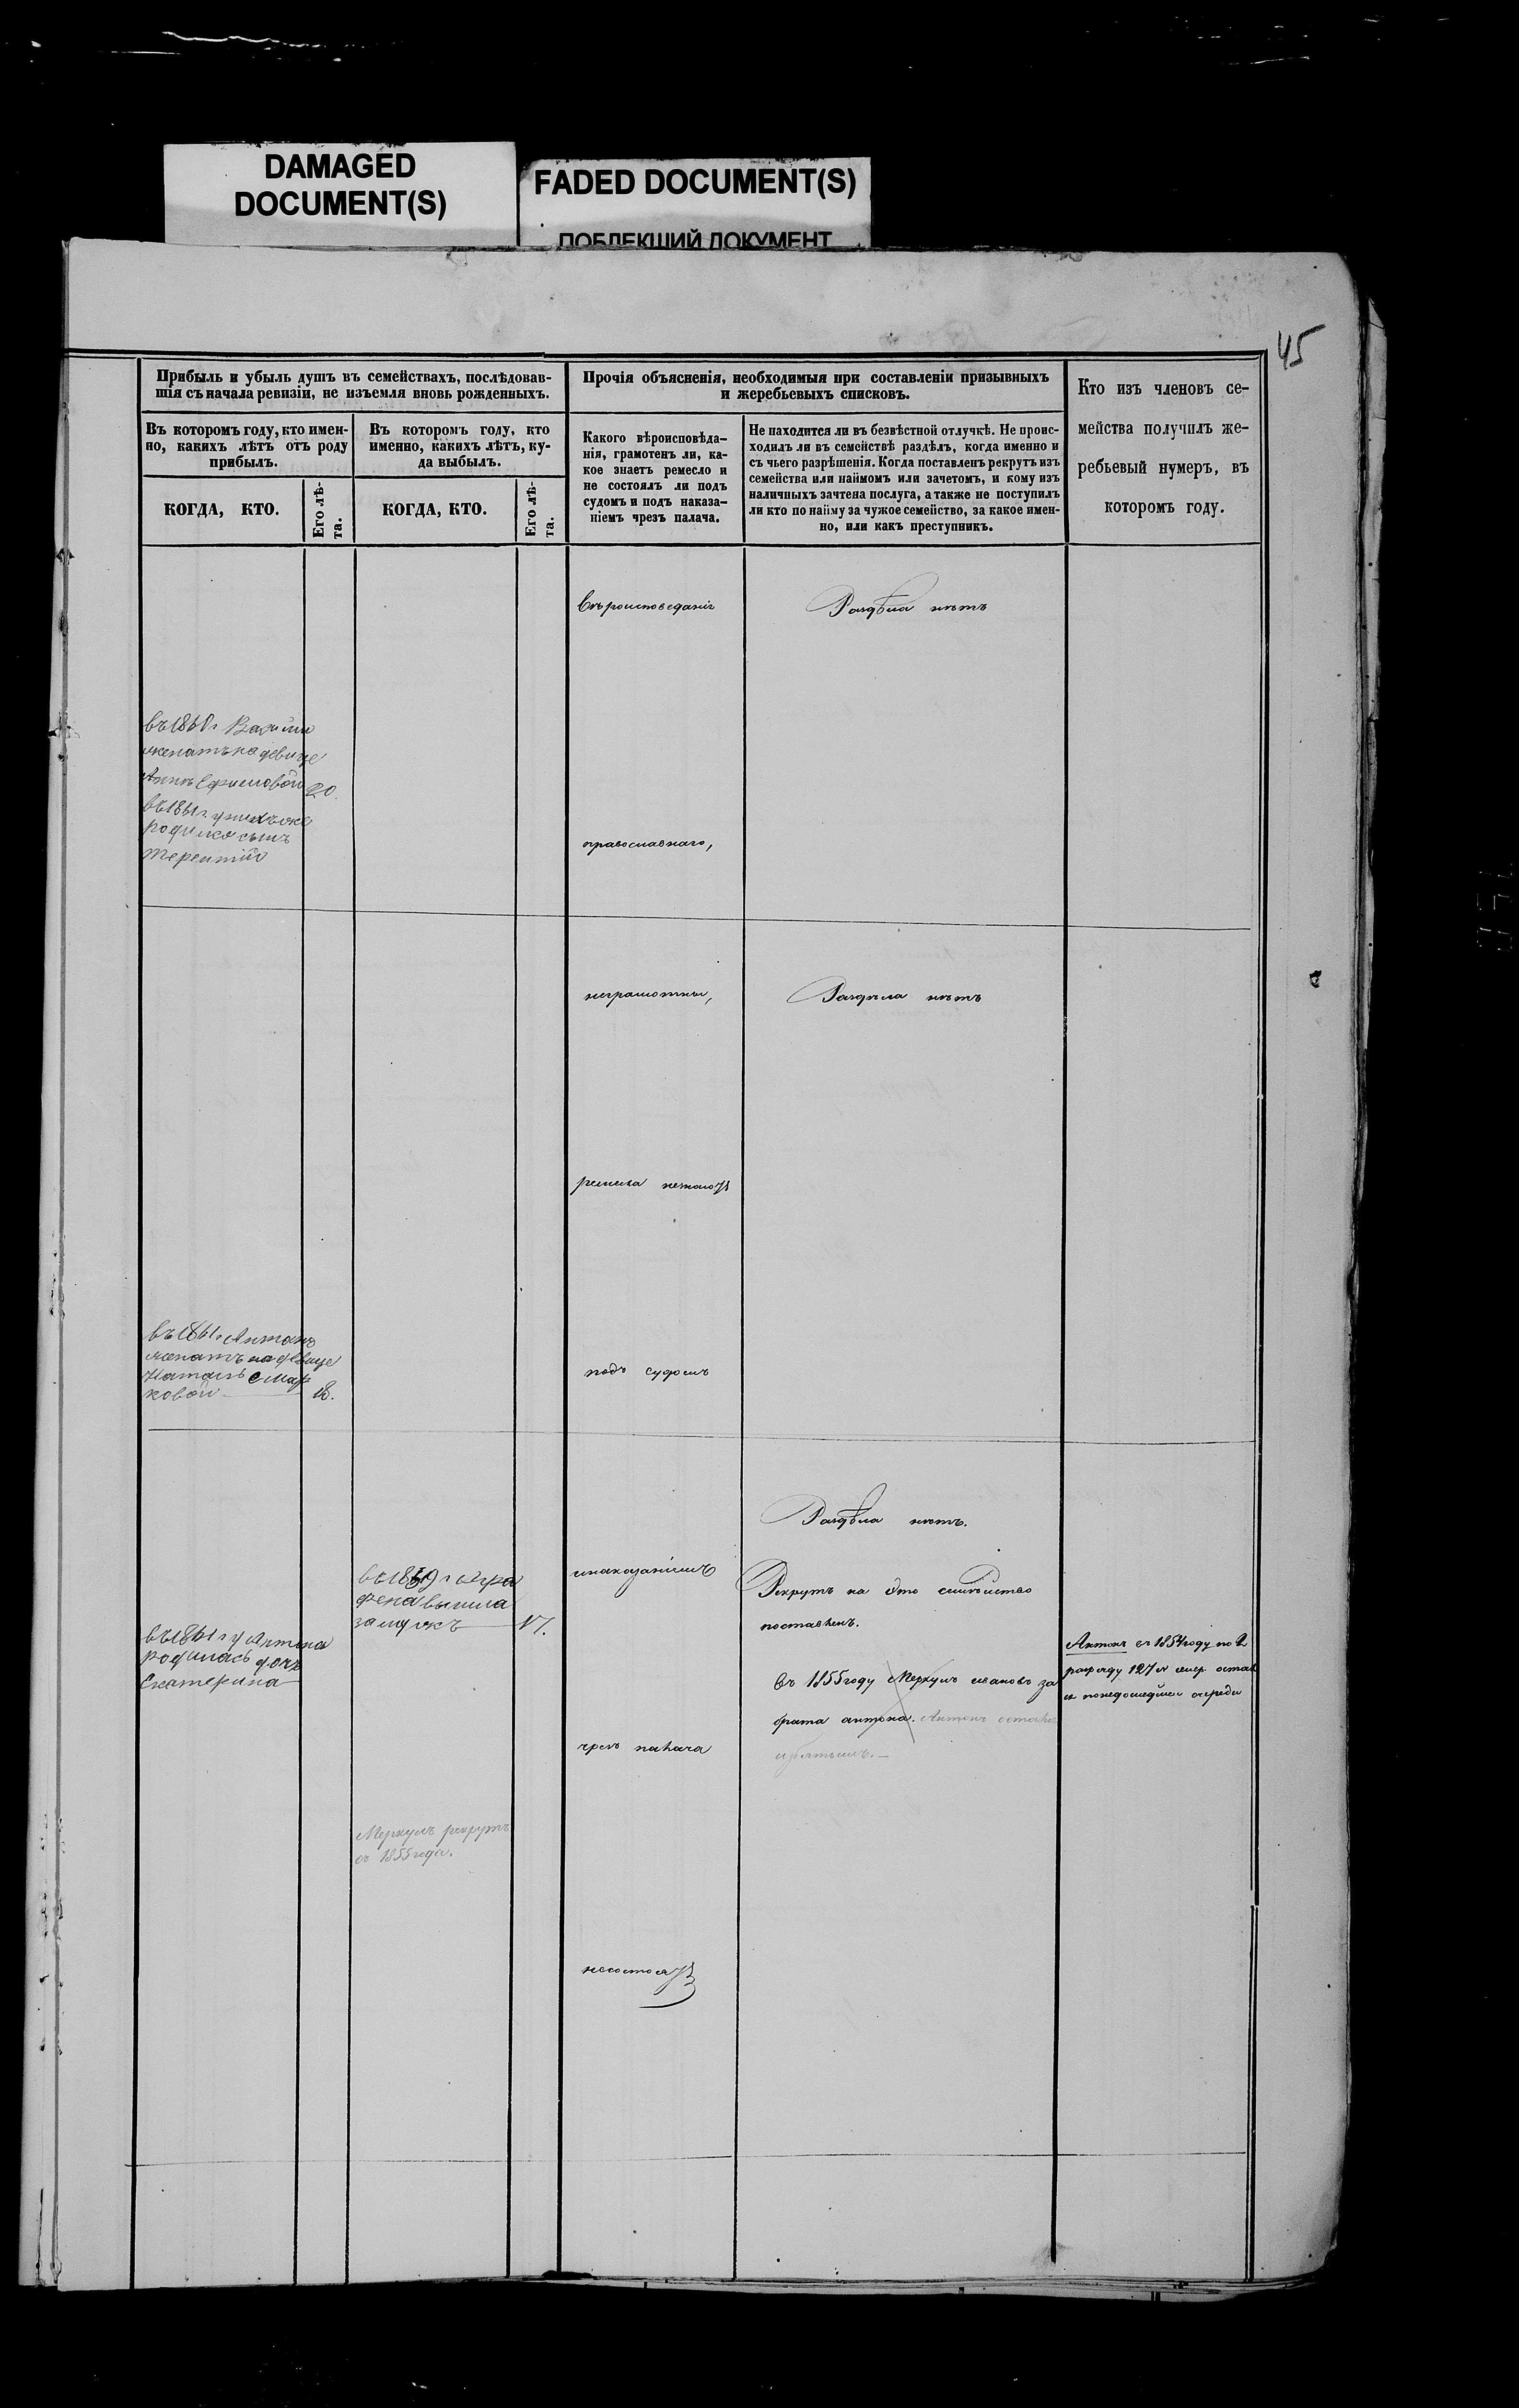 DAMAGED
DOCUMENT(S)
FADED DOCUMENT(S)
ПОБЛЕКШИЙ ДОКУМЕНТ
45
Прибыль и убыль душъ въ семействахъ, послѣдовав-
шія съ начала ревизіи, не изъемля вновь рожденныхъ.
Въ которомъ году, кто имен-
но, какихъ лѣтъ отъ роду
прибылъ.
КОГДА, КТО.
Его лѣ-
та.
Въ которомъ году, кто
именно, какихъ лѣтъ, ку-
да выбылъ.
КОГДА, КТО.
Его лѣ-
та.
Прочія объясненія, необходимыя при составленіи призывныхъ
и жеребьевыхъ списковъ.
Какого вѣроисповѣда-
нія, грамотенъ ли, ка-
кое знаетъ ремесло и
не состоялъ ли подъ
судомъ и подъ наказа-
ніемъ чрезъ палача.
Не находится ли въ безвѣстной отлучкѣ. Не проис-
ходилъ ли въ семействѣ раздѣлъ, когда именно и
съ чьего разрѣшенія. Когда поставленъ рекрутъ изъ
семейства или наймомъ или зачетомъ, и кому изъ
наличныхъ зачтена послуга, а также не поступилъ
ли кто по найму за чужое семейство, за какое имен-
но, или какъ преступникъ.
Кто изъ членовъ се-
мейства получилъ же-
ребьевый нумеръ, въ
которомъ году.
Вѣроисповеданія
Раздѣла нѣтъ
женатъ на девице
Аннѣ Ефимовой 20.
въ 1861 г у нихъ же
родился сынъ
Терентій
православнаго,
неграмотны,
Раздѣла нѣтъ
ремесла
въ 1861 г Антонъ
женатъ на девице
Маръ
ковой 18.
подъ судомъ
Раздѣла нѣтъ.
въ 1859 г Агра
фена вышла
замужъ 17.
инаказаніемъ
Рекрутъ на это семѣйство
поставленъ.
въ 1861 г у Антона
родилась дочь
Екатерина
Въ 1855 году Меркулъ ивановъ за
брата антона. Антонъ
Антонъ въ 1854 году по 2
разряду 127 №
очереди
чрезъ палача
Меркулъ рекрутъ
въ 1855 года.
несостоял